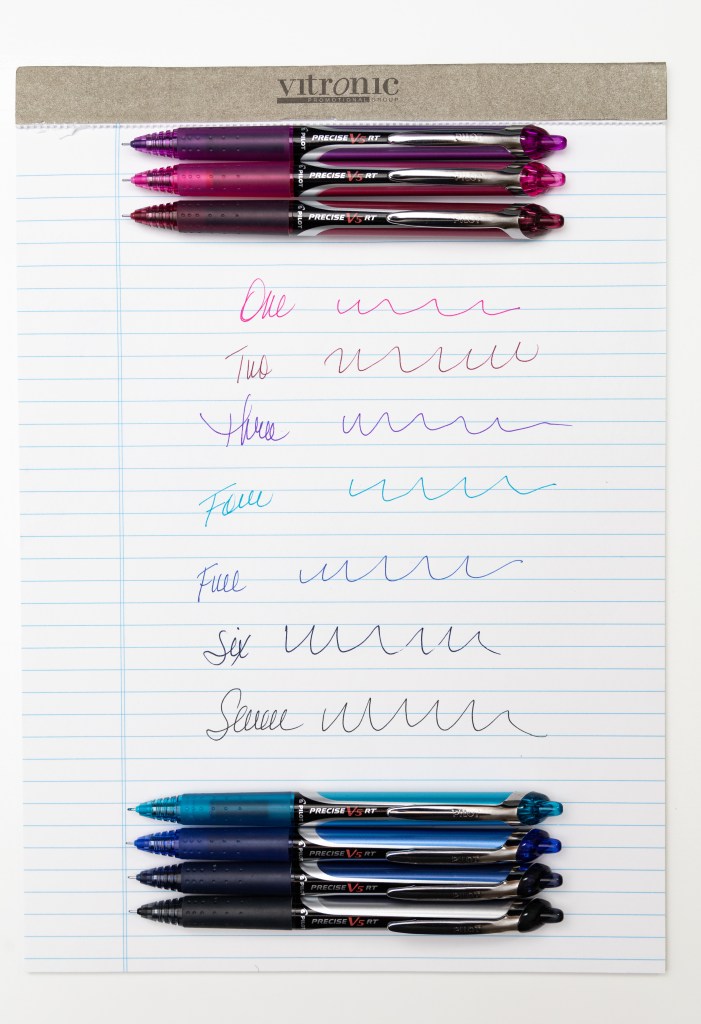 vitronic
PROMOTIONAL GROUP
PILOT PRECISE V5 RT PILOT
PILOT PRECISE V5 RT PILOT
PILOT PRECISE V5 RT PILOT
One
Two
three
Four
Five
Six
Seven
PILOT PRECISE V5 RT PILOT
PILOT PRECISE V5 RT PILOT
PILOT PRECISE V5 RT PILOT
PILOT PRECISE V5 RT PILOT